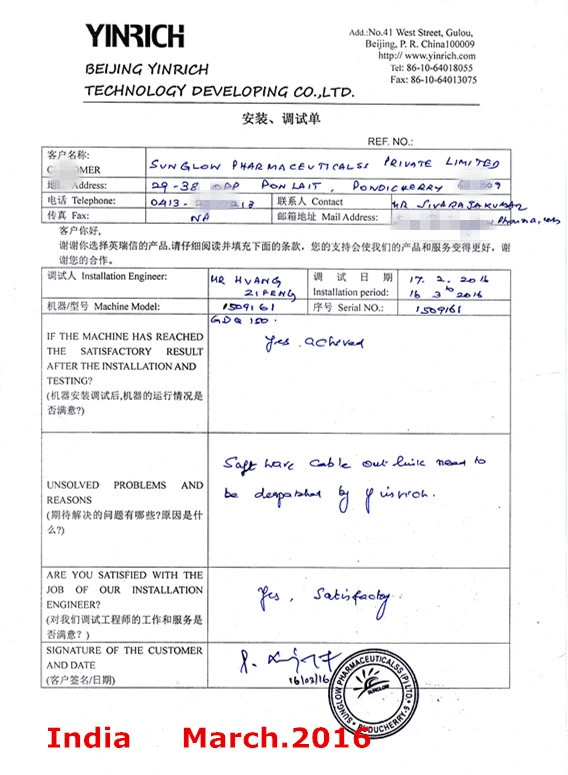 YINRICH
BEIJING YINRICH
TECHNOLOGY DEVELOPING CO.,LTD.
Add.:No.41 West Street, Gulou,
Beijing, P. R. China100009
http:// www.yinrich.com
Tel: 86-10-64018055
Fax: 86-10-64013075
安装、调试单
REF. NO.:
客户名称:
SUNGLOW PHARMACEUTICALSS PRIVATE LIMITED
Address:
29-38 ODP PONLAIT, PONDICHERRY
电话 Telephone:
0413-
联系人 Contact
MR SIVARAJAKUMAR
传真 Fax:
NA
邮箱地址 Mail Address:
客户你好,
谢谢你选择英瑞信的产品,请仔细阅读并填充下面的条款，您的支持会使我们的产品和服务变得更好，谢
谢您的合作。
调试人 Installation Engineer:
MR HUANG
ZIFENG
调 试 日 期
Installation period:
17. 2. 2016
16 3rd 2016
机器/型号 Machine Model:
1509161
GDQ 150.
序号 Serial NO.:
1509161
IF THE MACHINE HAS REACHED
THE SATISFACTORY RESULT
AFTER THE INSTALLATION AND
TESTING?
(机器安装调试后,机器的运行情况是
否满意?)
Yes acheved
UNSOLVED PROBLEMS AND
REASONS
(期待解决的问题有哪些?原因是什
么?)
Soft ware cable out link need to
be despatched by Yinrich.
ARE YOU SATISFIED WITH THE
JOB OF OUR INSTALLATION
ENGINEER?
(对我们调试工程师的工作和服务是
否满意？)
Yes, Satisfactory
SIGNATURE OF THE CUSTOMER
AND DATE
(客户签名/日期)
16/03/16
SUNGLOW PHARMACEUTICALSS (P) LTD.
SUNGLOW
PUDUCHERRY-9
India March.2016